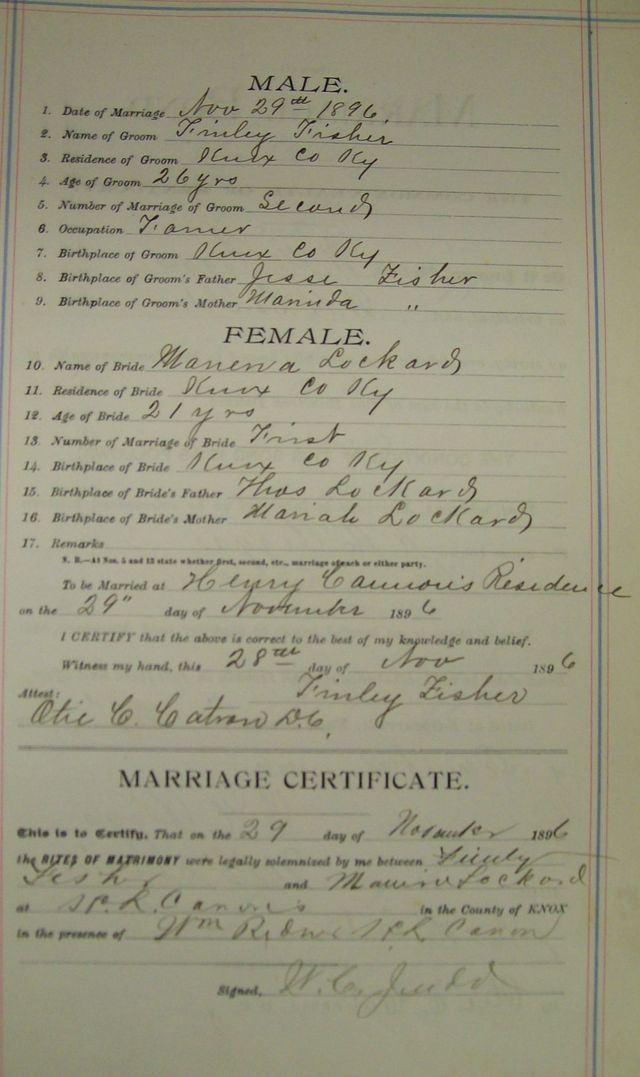 MALE.
1. Date of Marriage Nov 29th 1896.
2. Name of Groom Finley Fisher
3. Residence of Groom Knox Co Ky
4. Age of Groom 26 yrs
5. Number of Marriage of Groom Second
6. Occupation Farmer
7. Birthplace of Groom Knox Co Ky
8. Birthplace of Groom's Father Jesse Fisher
9. Birthplace of Groom's Mother Marinda "
FEMALE.
10. Name of Bride Lockard
11. Residence of Bride Knox Co Ky
12. Age of Bride 21 yrs
13. Number of Marriage of Bride First
14. Birthplace of Bride Knox Co Ky
15. Birthplace of Bride's Father Thos Lockard
16. Birthplace of Bride's Mother Mariah Lockard
17. Remarks
N. B.—At Nos. 5 and 13 state whether first, second, etc., marriage of each or either party.
To be Married at Henry Cannon's Residence
on the 29" day of November 1896
I CERTIFY that the above is correct to the best of my knowledge and belief.
Witness my hand, this 28th day of Nov 1896
Finley Fisher
Attest:
Otie C. Catron D.C.
MARRIAGE CERTIFICATE.
This is to Certify, That on the 29 day of November 1896
the RITES OF MATRIMONY were legally solemnized by me between Finly
Fisher and Lockard
at in the County of KNOX
in the presence of Wm Canon
Signed, W. C. Judd